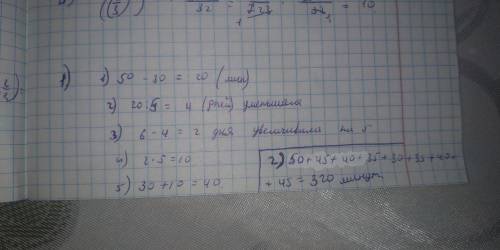 32 = = 10
1) 1) 50 - 30 = 20 (мин)
2) 20:5 = 4 (дней) уменьшала
3) 6 - 4 = 2 дня увеличивала на 5
4) 2·5=10
5) 30+10=40
2) 50+45+40+35+30+35+40+
+45=320 минут